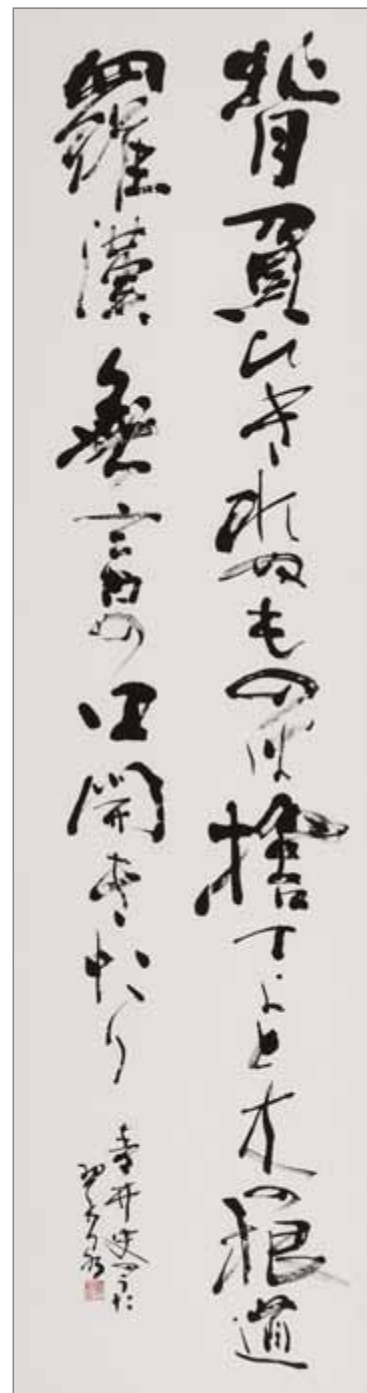 背負ひきれぬものは捨てよと木の根道
羅漢無言の口開きたり
青井史のうた